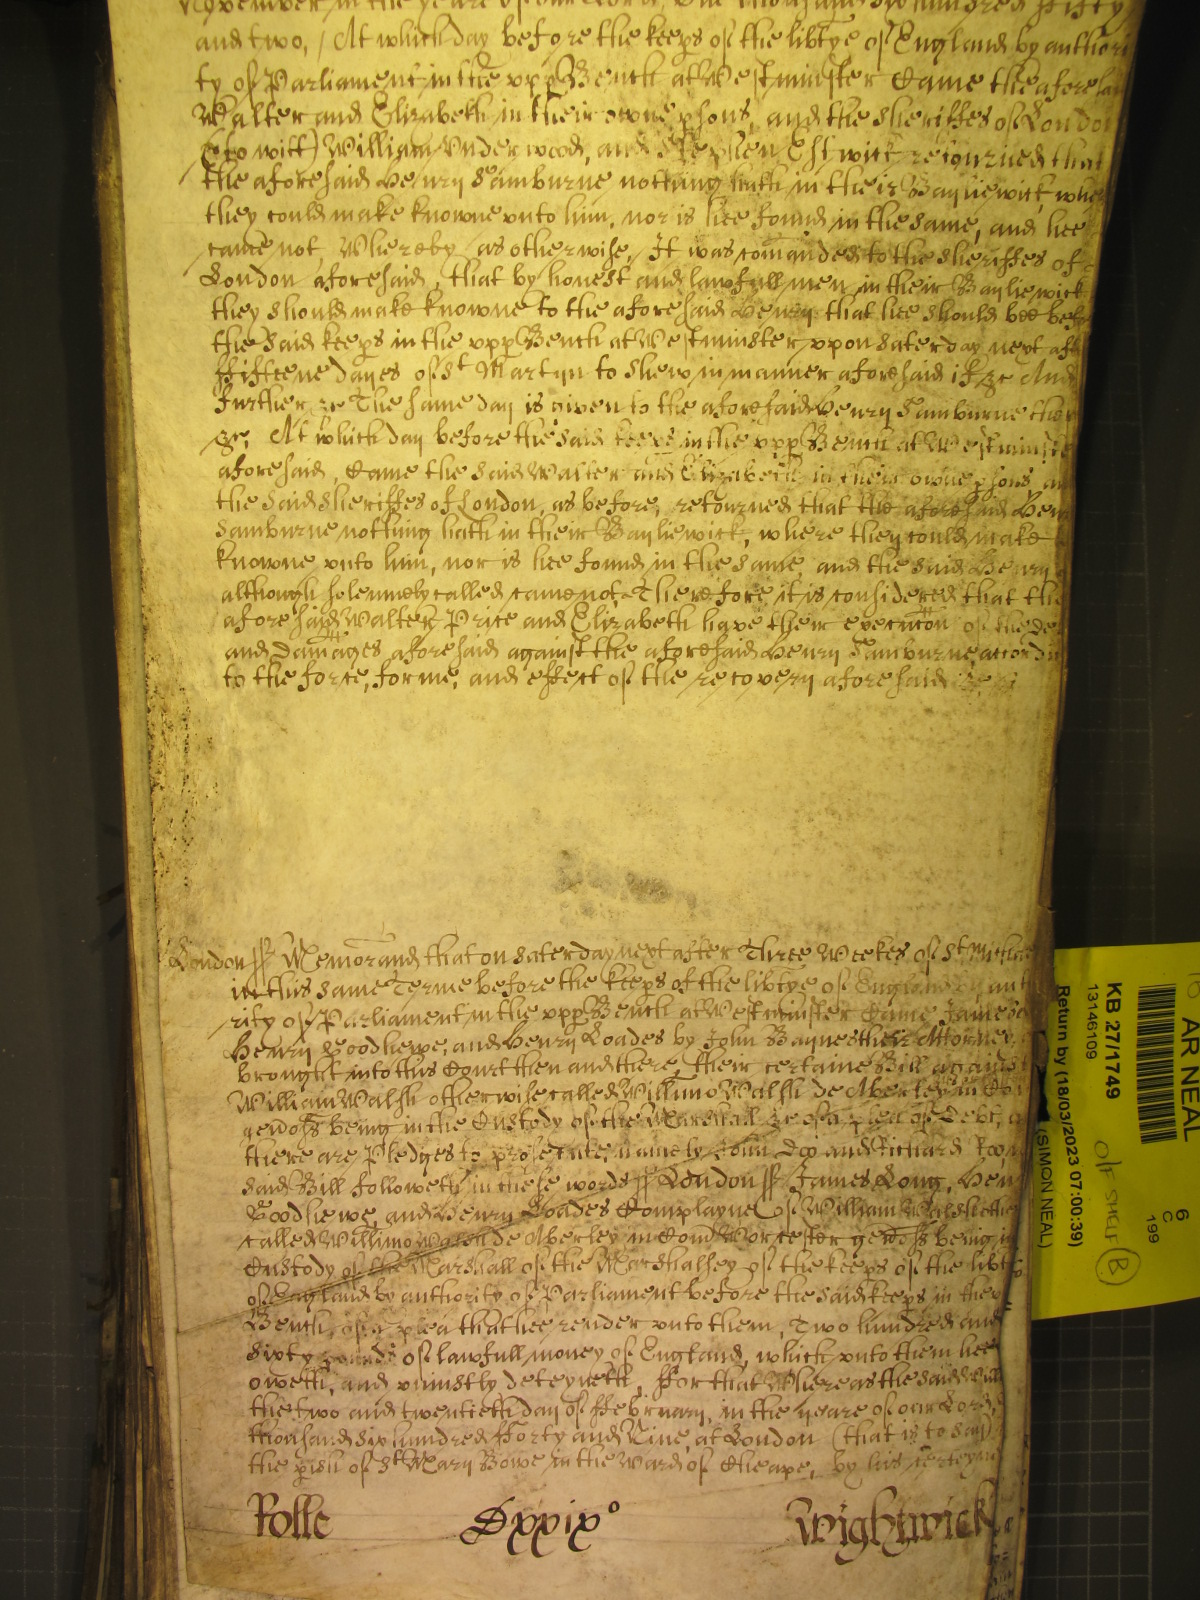 November in the yeare of our Lord, one thousand six hundred fifty
and two, / At which day before the keeps of the libtye of England by authori
ty of Parliament in the vpp Bench at Westminster Came the aforesaid
Walter and Elizabeth in their owne psons, and the Sheriffes of London
(to witt) William Vnderwood, and Stephen Estwick retourned that
the aforesaid Henry Samburne nothing hath in their Bayliewick, where
they could make knowne vnto him, nor is hee found in the same, and hee
came not, Whereby as otherwise, It was comanded to the Sheriffes of
London aforesaid, that by honest and lawfull men in their Bayliewick
they should make knowne to the aforesaid Henry that hee should bee before
the said keeps in the vpp Bench at Westminster vpon Saterday next aft
ffifteene dayes of St Martyn to shew in manner aforesaid if &c And
further &c The same day is given to the aforesaid Henry Samburne there
&c, At which day before the said keeps in the vpp Bench at Westminste
aforesaid, Came the said Walter and Elizabeth in their owne psons an
the said Sheriffes of London, as before, retourned that the aforesaid Hen
Samburne nothing hath in their Bayliewick, where they could make
knowne vnto him, nor is hee found in the same, and the said Henry
although solemnely called came not, Therefore it is considered that the
aforesaid Walter Price and Elizabeth have their execucon of the de
and damages aforesaid against the aforesaid Henry Samburne, accordin
to the force, forme, and effect of the recovery aforesaid &c
London ss Memorand that on Saterday next after Three Weekes of St Michae
in this same Terme before the keeps of the libtye of England by aut
rity of Parliament in the vpp Bench at Westminster Came James
Henry Goodhewe, and Henry Loades by John Baynes their Attorney,
brought into this Court then and there, their certaine Bill against
William Walsh otherwise called Willimo Walsh de Aberley in Co
genosus being in the Custody of the Marshall &c of a plea of Debt,
there are Pledges to prosecute, namely John Doo and Richard Roo
said Bill followeth in these words ss London ss James Long, Hen
Goodhewe, and Henry Loades Complayne of William Walsh othe
called Willimo Walsh de Aberley in Com Worcester genosus being in
Custody of the Marshall of the Marshalsey of the keeps of the libty
of England by authority of Parliament before the said keeps in the v
Bench, of a plea that hee render vnto them, Two hundred and
sixty pounds of lawfull money of England, which vnto them hee
oweth, and vniustly deteyneth, ffor that Whereas the said Will
the two and twentieth day of ffebruary, in the yeare of our Lord,
thousand six hundred fforty and Nine, at London (that is to say)
the pish of St Mary Bowe in the Ward of Cheape, by his certeyne
Rolle Dxxixo Wightwick
AR NEAL
6
C
199
KB 27/1749
13146109
Return by (18/03/2023 07:00:39)
(SIMON NEAL)
O/F SHELF B